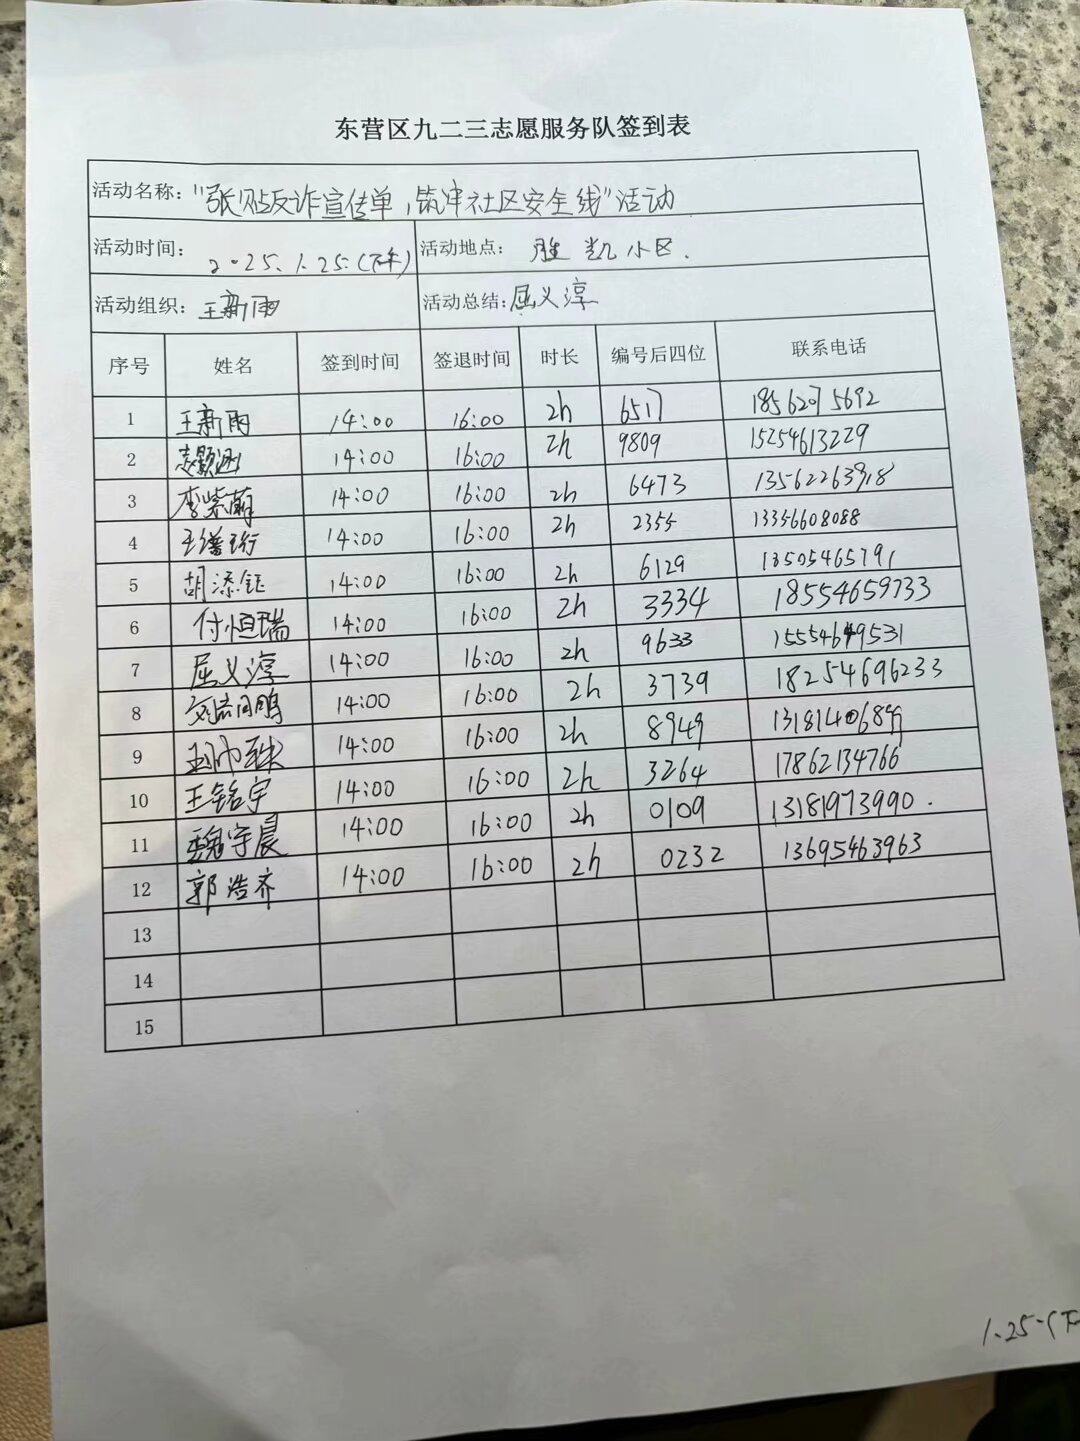 东营区九二三志愿服务队签到表
活动名称："张贴反诈宣传单，筑牢社区安全线"活动
活动时间：2025.1.25.(下午) 活动地点：胜凯小区.
活动组织：王新雨 活动总结：屈义淳
序号 姓名 签到时间 签退时间 时长 编号后四位 联系电话
1 王新雨 14:00 16:00 2h 6517 18562075692
2 14:00 16:00 2h 9809 15254613229
3 李紫萌 14:00 16:00 2h 6473 13562263918
4 14:00 16:00 2h 2355 13356608088
5 胡添钰 14:00 16:00 2h 6129 13505465791
6 付恒瑞 14:00 16:00 2h 3334 18554659733
7 屈义淳 14:00 16:00 2h 9633 15554649531
8 14:00 16:00 2h 3739 18254696233
9 14:00 16:00 2h 8949
10 王铭宇 14:00 16:00 2h 3264 17862134766
11 魏宇晨 14:00 16:00 2h 0109 13181973990.
12 郭浩齐 14:00 16:00 2h 0232 13695463963
13
14
15
1.25.(下